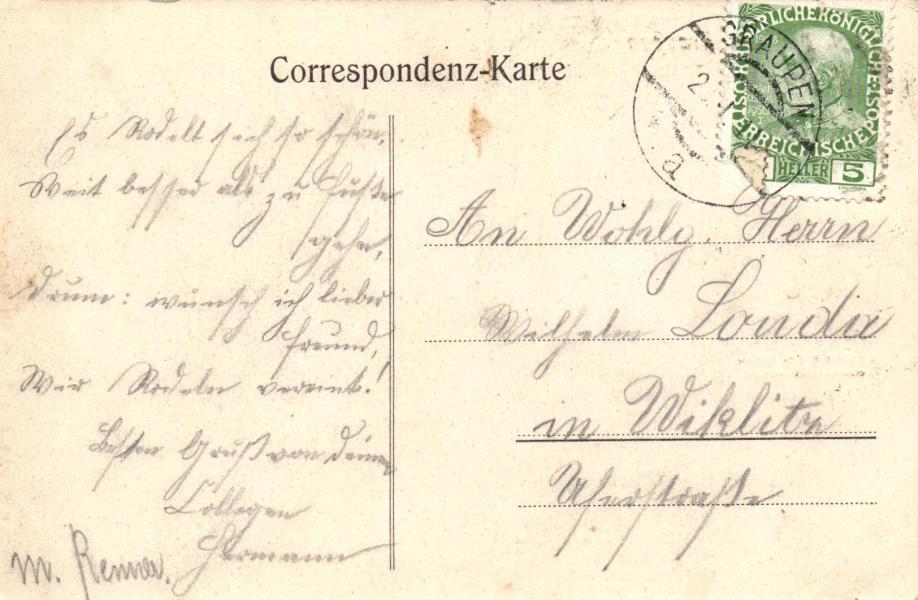 Correspondenz-Karte
Es Rodelt sich so schön,
Weit besser als zu Fuße
gehn,
Drum: wünsch ich lieber
Freund,
Wir Rodeln vereint!
Besten Gruß von deinem
Collegen
Hermann
M. Renner.
GRAUPEN
2
a
KAISERLICHE KÖNIGLICHE
ÖSTERREICHISCHE POST
HELLER 5
An Wohlg. Herrn
Wilhelm Louda
in Wiklitz
Uferstraße